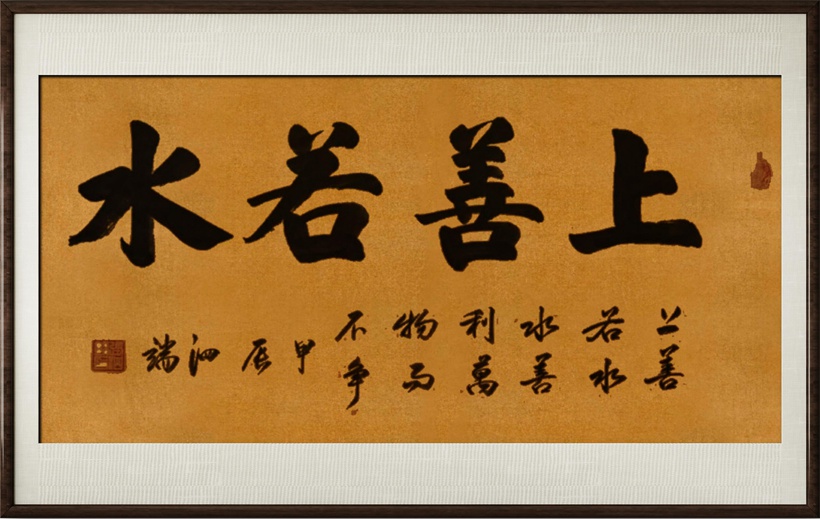 上善若水
上善
若水
水善
利萬
物而
不争
甲辰
泗端